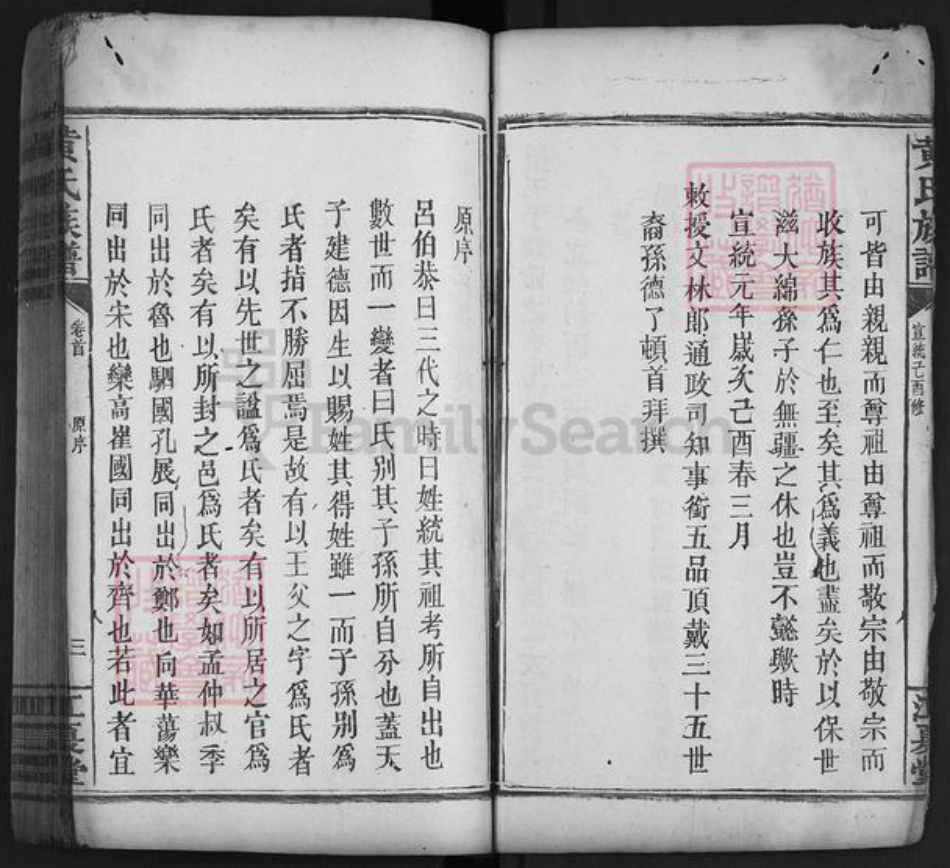 黃氏族譜
宣統己酉修
江夏堂
可皆由親親而尊祖由尊祖而敬宗由敬宗而
收族其爲仁也至矣其爲義也盡矣於以保世
滋大綿孫子於無疆之休也豈不懿歟時
宣統元年嵗次己酉春三月
敕授文林郎通政司知事銜五品頂戴三十五世
裔孫德了頓首拜撰
原序
呂伯恭曰三代之時曰姓統其祖考所自出也
數世而一變者曰氏別其子孫所自分也蓋天
子建德因生以賜姓其得姓雖一而子孫別爲
氏者指不勝屈焉是故有以王父之字爲氏者
矣有以先世之諡爲氏者矣有以所居之官爲
氏者矣有以所封之邑爲氏者矣如孟仲叔季
同出於魯也駟國孔展同出於鄭也向華蕩樂
同出於宋也欒高崔國同出於齊也若此者宜
黃氏族譜
卷首
原序
三
江夏堂
FamilySearch